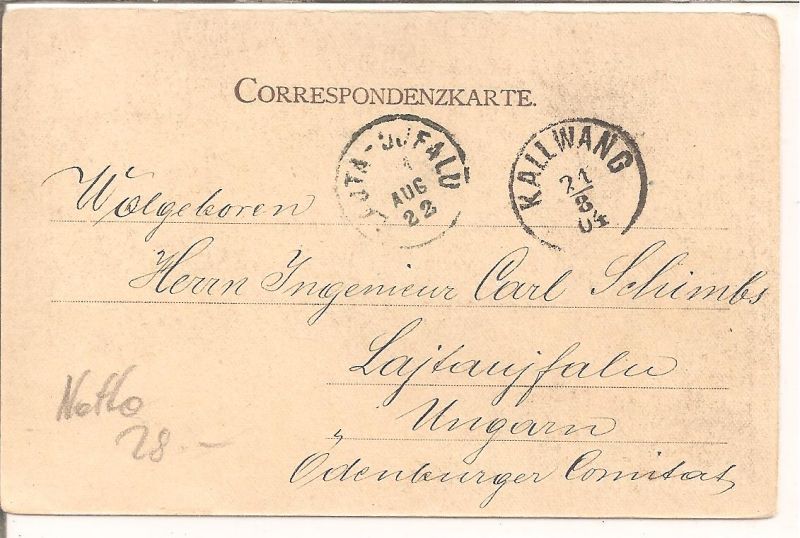 CORRESPONDENZKARTE.
LAJTA-UJFALU
AUG
22
KALLWANG
21/8
04
Wolgeboren
Herrn Ingenieur Carl Schimbs
Lajtaujfalu
Ungarn
Ödenburger Comitat
Netto
28.-